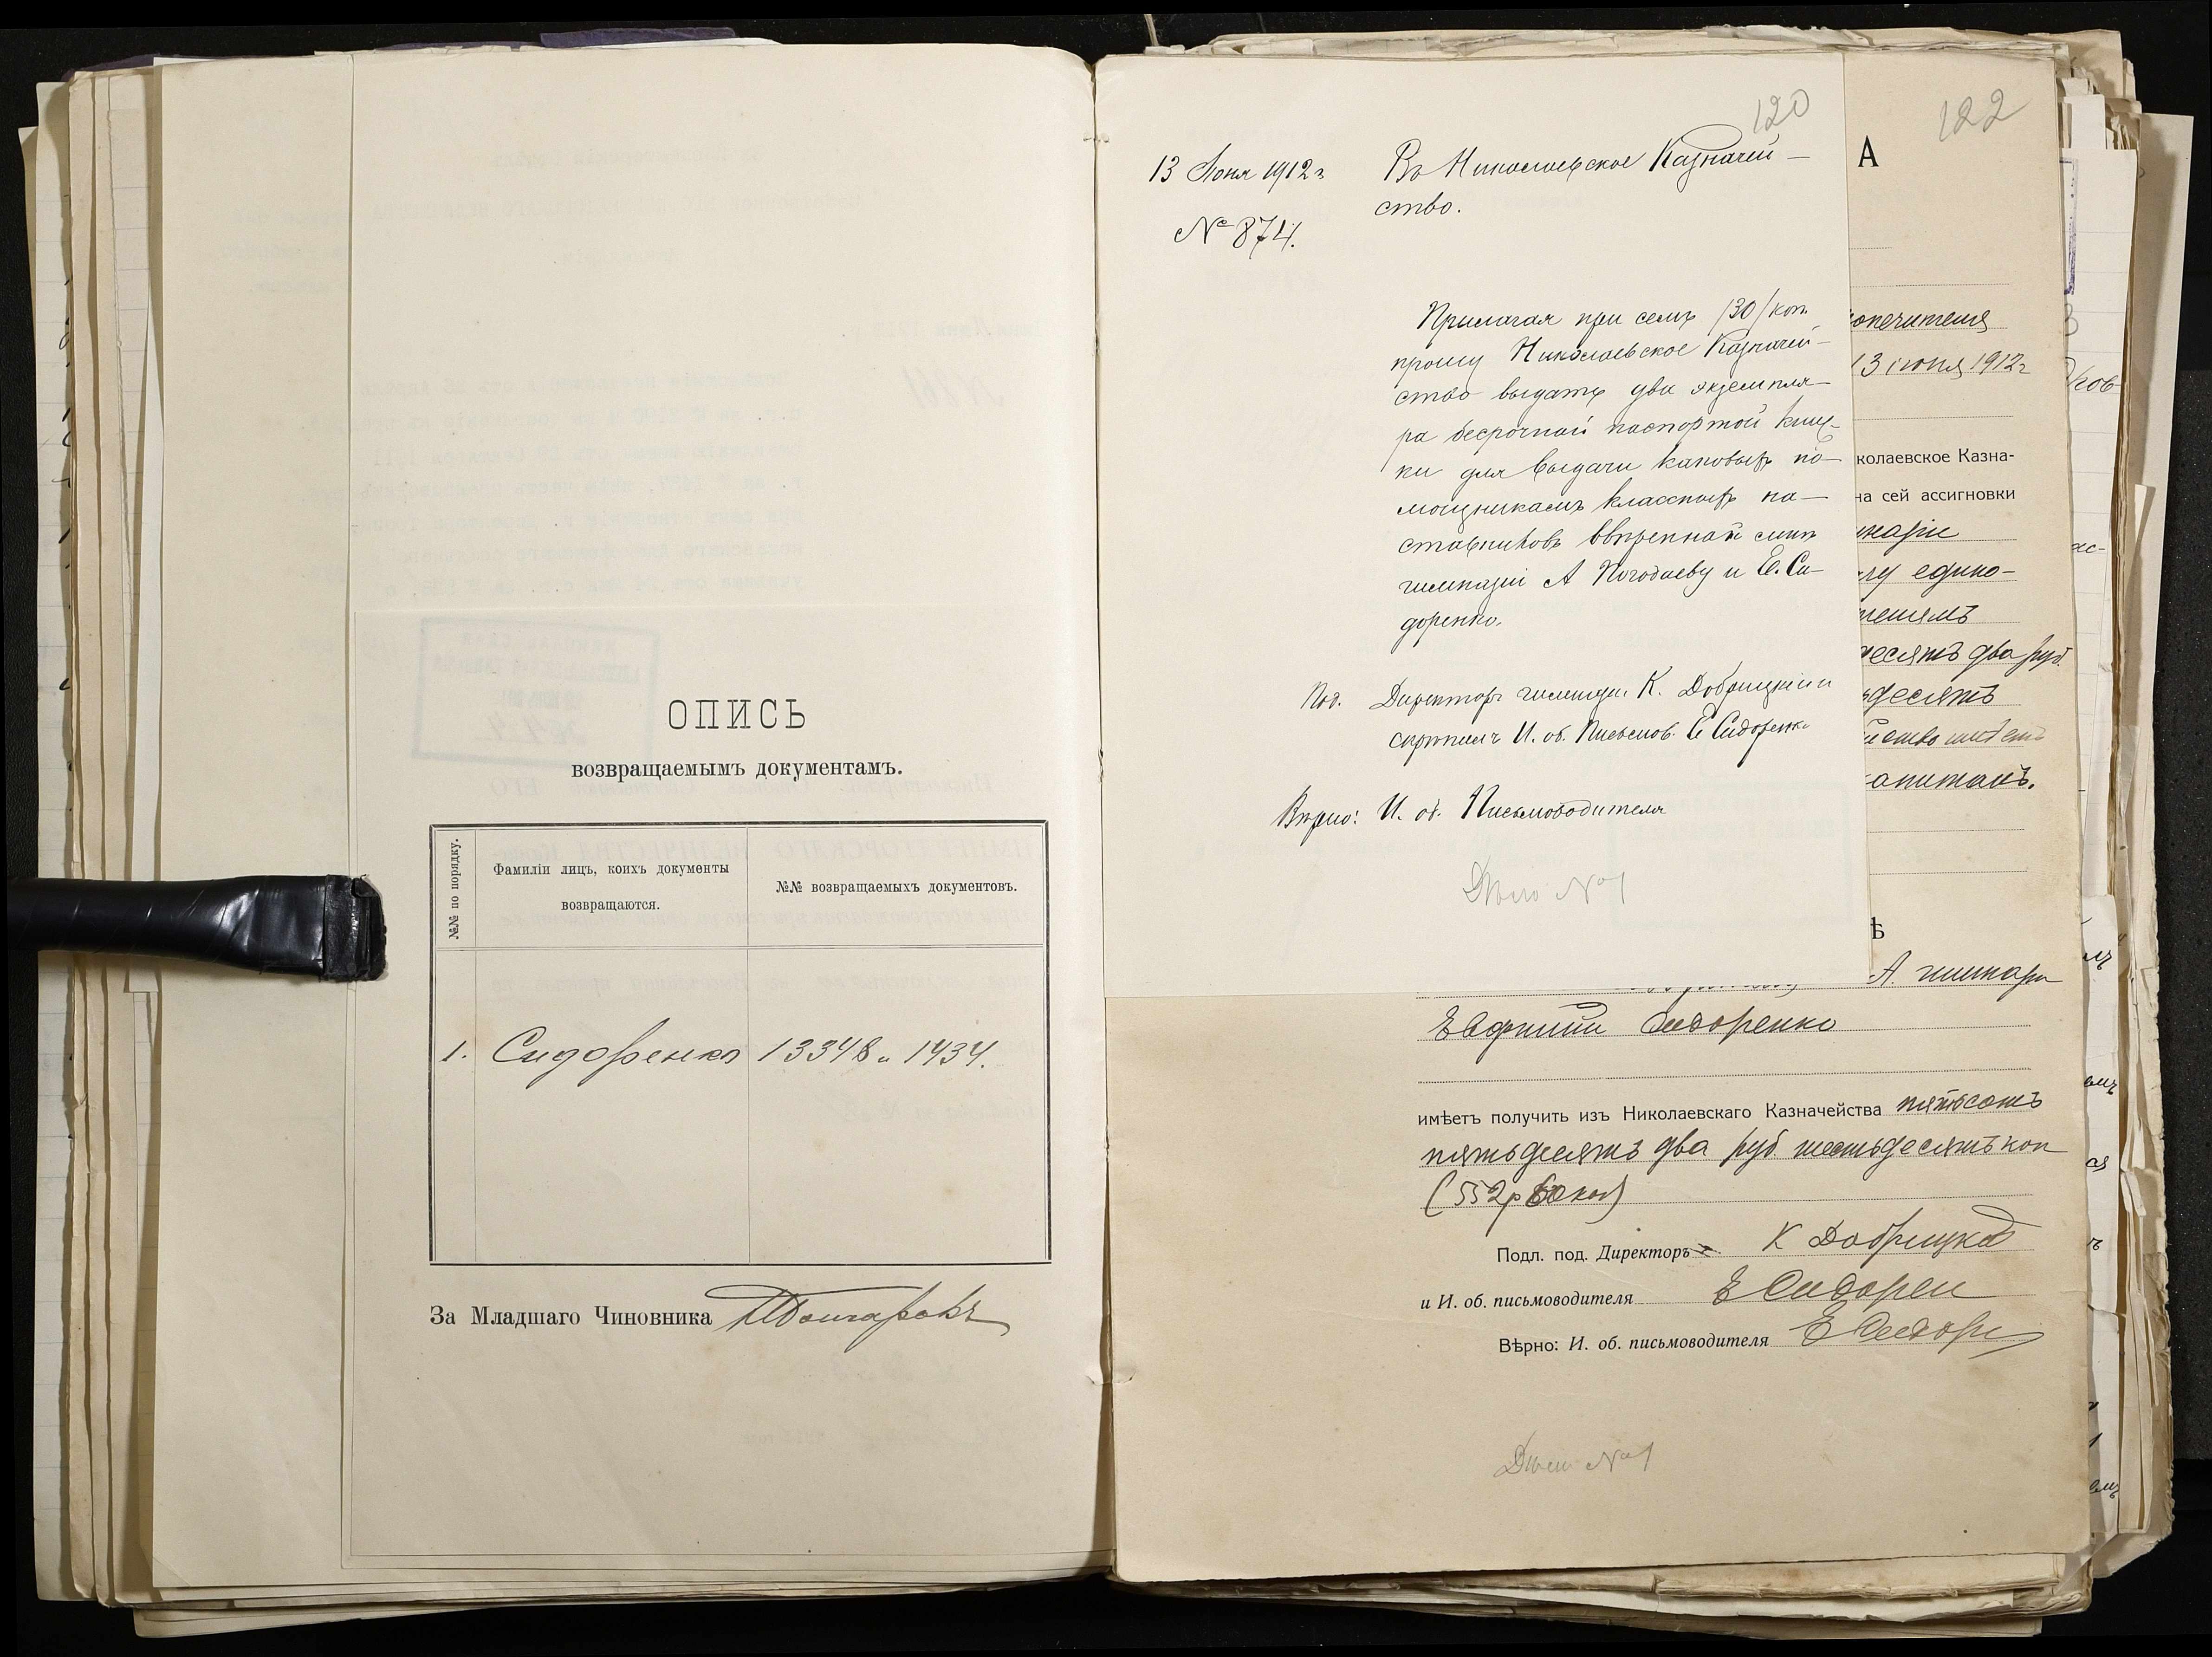 ОПИСЬ
возвращаемымъ документамъ.
№№ по порядку.
Фамиліи лицъ, коихъ документы
возвращаются.
№№ возвращаемыхъ документовъ.
1. Сидоренко 13348 и 1434.
За Младшаго Чиновника
120
13 Іюня 1912 г
№ 874.
Въ Николаевское Казначей-
ство.
Прилагая при семъ /30/ коп.
прошу Николаевское Казначей-
ство выдать два экземпля-
ра бесрочной паспортой книж-
ки для выдачи каковыхъ по-
мощникамъ классныхъ на-
ставниковъ ввѣренной мнѣ
гимназіи А Погодаеву и Е. Си-
доренко.
Под. Директоръ гимназіи К. Добрицкій и
скрѣпилъ И. об. Письмов. Е Сидоренко
Вѣрно: И. об. Письмоводителя
Дѣло №1
122
А
опечителя
13 іюня 1912 г
колаевское Казна-
на сей ассигновки
назіи
лу едино-
телямъ
десятъ два руб.
десятъ
капиталъ.
Ѣ
А. гимназіи
Евфимій Сидоренко
имѣетъ получить изъ Николаевскаго Казначейства пятьсотъ
пятьдесятъ два руб. шестьдесятъ коп
(552 р 60 коп)
Подл. под. Директоръ К Добрицкій
и И. об. письмоводителя Е Сидорен
Вѣрно: И. об. письмоводителя Е Сидорен
Дѣло №1